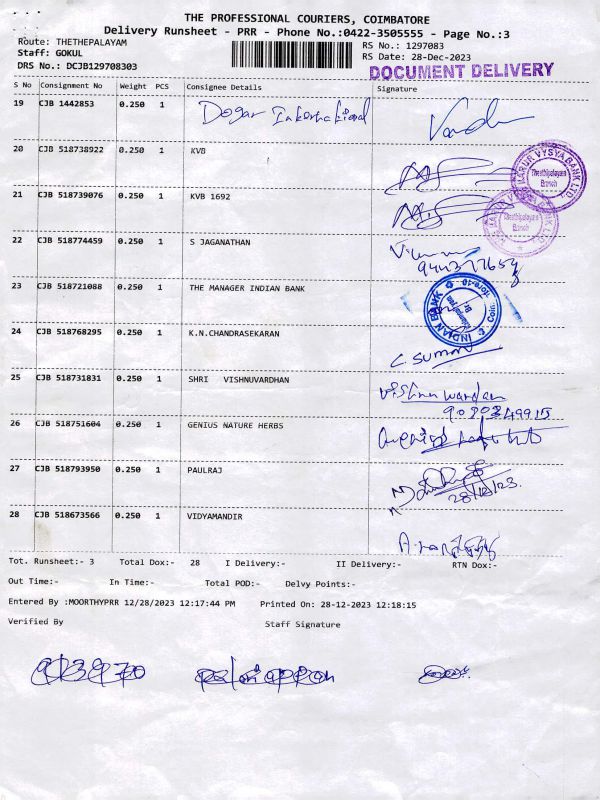 THE PROFESSIONAL COURIERS, COIMBATORE
Delivery Runsheet - PRR - Phone No.:0422-3505555 - Page No.:3
Route: THETHEPALAYAM
RS No.: 1297083
Staff: GOKUL
RS Date: 28-Dec-2023
DRS No.: DCJB129708303
DOCUMENT DELIVERY
S No Consignment No Weight PCS Consignee Details Signature
19 CJB 1442853 0.250 1 Dogar International
20 CJB 518738922 0.250 1 KVB
KARUR VYSYA BANK LTD
Thethipalayam
Branch
21 CJB 518739076 0.250 1 KVB 1692
Thethipalayam
Branch
22 CJB 518774459 0.250 1 S JAGANATHAN
23 CJB 518721088 0.250 1 THE MANAGER INDIAN BANK
INDIAN BANK
24 CJB 518768295 0.250 1 K.N.CHANDRASEKARAN
C. Suman
25 CJB 518731831 0.250 1 SHRI VISHNUVARDHAN
Vishnu vardan
26 CJB 518751604 0.250 1 GENIUS NATURE HERBS
27 CJB 518793950 0.250 1 PAULRAJ
28/12/23.
28 CJB 518673566 0.250 1 VIDYAMANDIR
Tot. Runsheet:- 3 Total Dox:- 28 I Delivery:- II Delivery:- RTN Dox:-
Out Time:- In Time:- Total POD:- Delvy Points:-
Entered By :MOORTHYPRR 12/28/2023 12:17:44 PM Printed On: 28-12-2023 12:18:15
Verified By Staff Signature